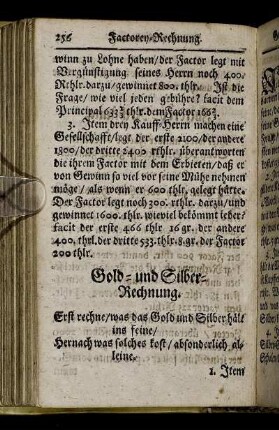 256 Factorey-Rechnung.
winn zu Lohne haben/der Factor legt mit
Vergünstigung seines Herrn noch 400/
Rthlr. darzu/gewinnet 800. thlr. Ist die
Frage/wie viel jeden gebühre? facit dem
Principal 633⅓ thlr. dem Factor 166⅔.
3. Item drey Kauff-Herrn machen eine
Gesellschafft/legt der erste 2100/der andere
1800/der dritte 2400 rthlr. überantworten
die ihrem Factor mit dem Erbieten/daß er
von Gewinn so viel vor seine Mühe nehmen
möge/als wenn er 600 thlr. gelegt hätte.
Der Factor legt noch 300. rthlr. darzu/und
gewinnet 1600. thlr. wieviel bekömmt jeder?
facit der erste 466 thlr 16 gr. der andere
400. thrl. der dritte 533. thlr. 8. gr. der Factor
200 thlr.
Gold- und Silber-
Rechnung.
Erst rechne/was das Gold und Silber hält
ins feine/
Hernach was solches kost/absonderlich al-
leine.
1. Item